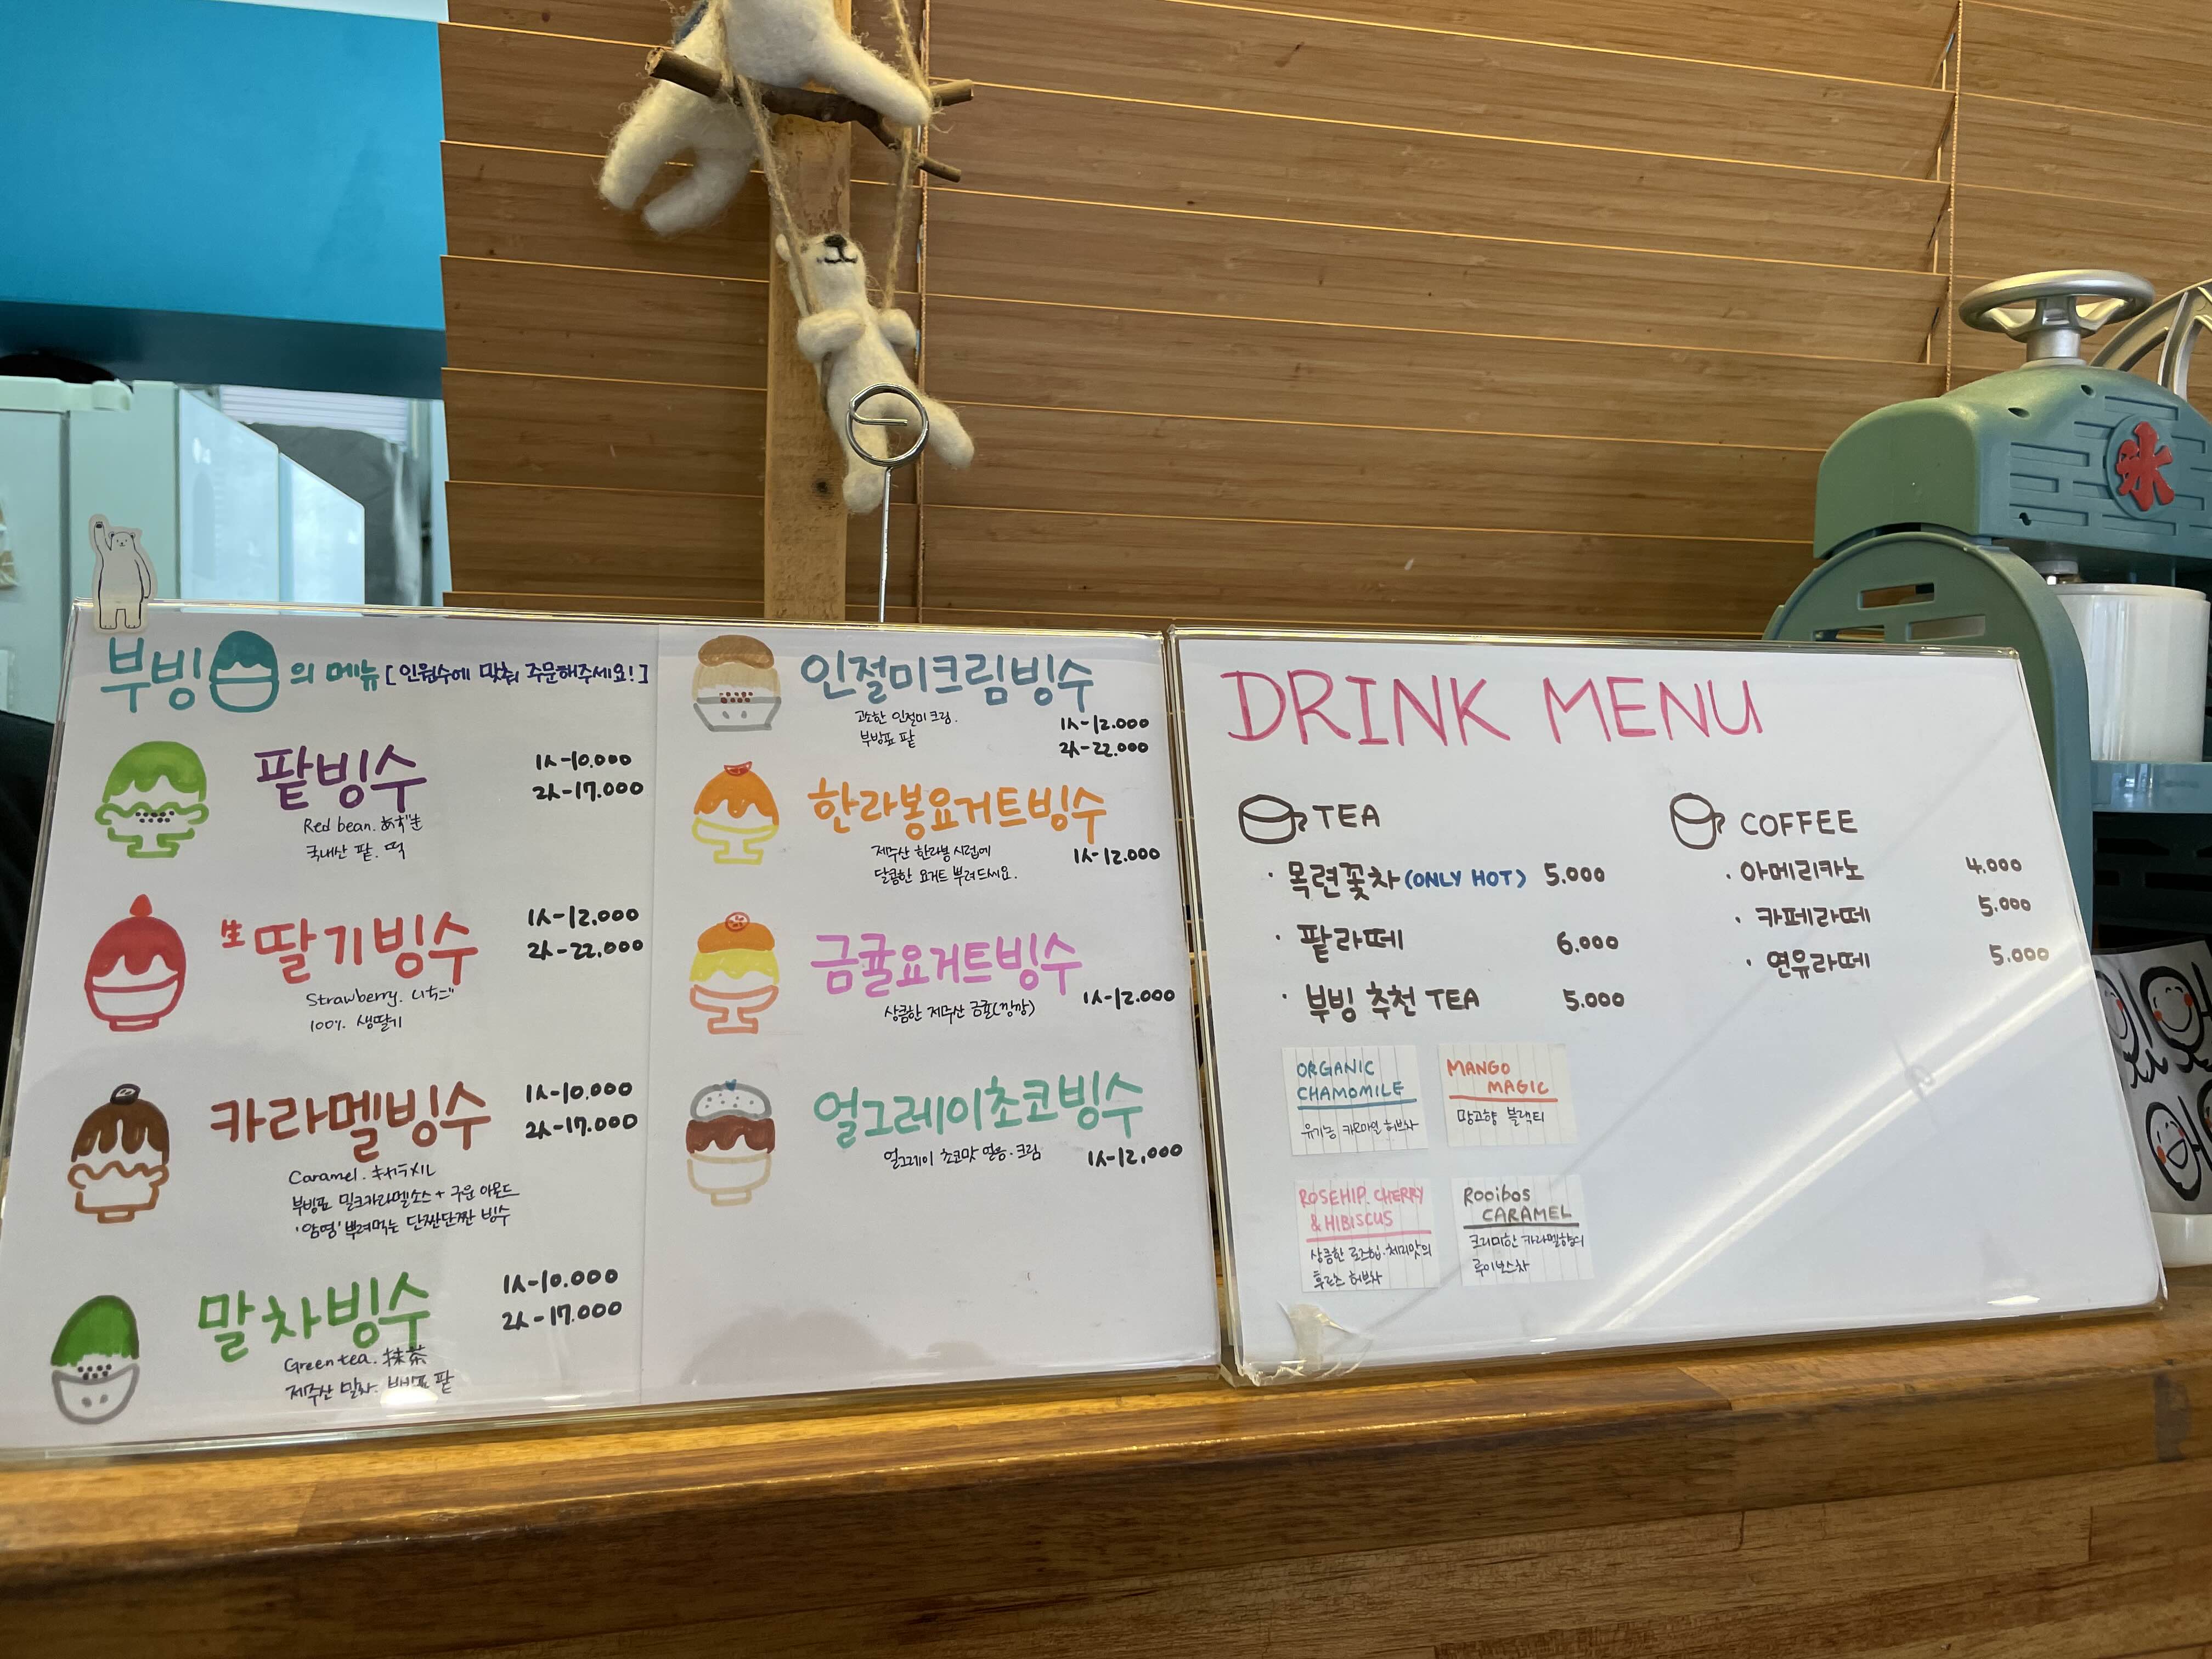 부빙의 메뉴 [인원수에 맞춰 주문해주세요!]
팥빙수
1人-10.000
2人-17.000
Red bean. あずき
국내산 팥. 떡
生딸기빙수
1人-12.000
2人-22.000
Strawberry. いちご
100% 생딸기
카라멜빙수
1人-10.000
2人-17.000
Caramel. キャラメル
부빙표 밀크카라멜소스 + 구운 아몬드
'암염' 뿌려먹는 단짠단짠 빙수
말차빙수
1人-10.000
2人-17.000
Green tea. 抹茶
제주산 말차. 팥
인절미크림빙수
고소한 인절미 크림.
부빙표 팥
1人-12.000
2人-22.000
한라봉요거트빙수
제주산 한라봉 시럽에
달콤한 요거트 뿌려드세요.
1人-12.000
금귤요거트빙수
상큼한 제주산 금귤(낑깡)
1人-12.000
얼그레이초코빙수
얼그레이 초코맛 얼음. 크림
1人-12,000
DRINK MENU
TEA
· 목련꽃차 (ONLY HOT) 5.000
· 팥라떼 6.000
· 부빙 추천 TEA 5.000
ORGANIC
CHAMOMILE
유기농 카모마일 허브차
MANGO
MAGIC
망고향 블랙티
ROSEHIP. CHERRY
& HIBISCUS
상큼한 로즈힙·체리맛의
후르츠 허브차
Rooibos
CARAMEL
크리미한 카라멜향의
루이보스차
COFFEE
· 아메리카노 4.000
· 카페라떼 5.000
· 연유라떼 5.000
氷